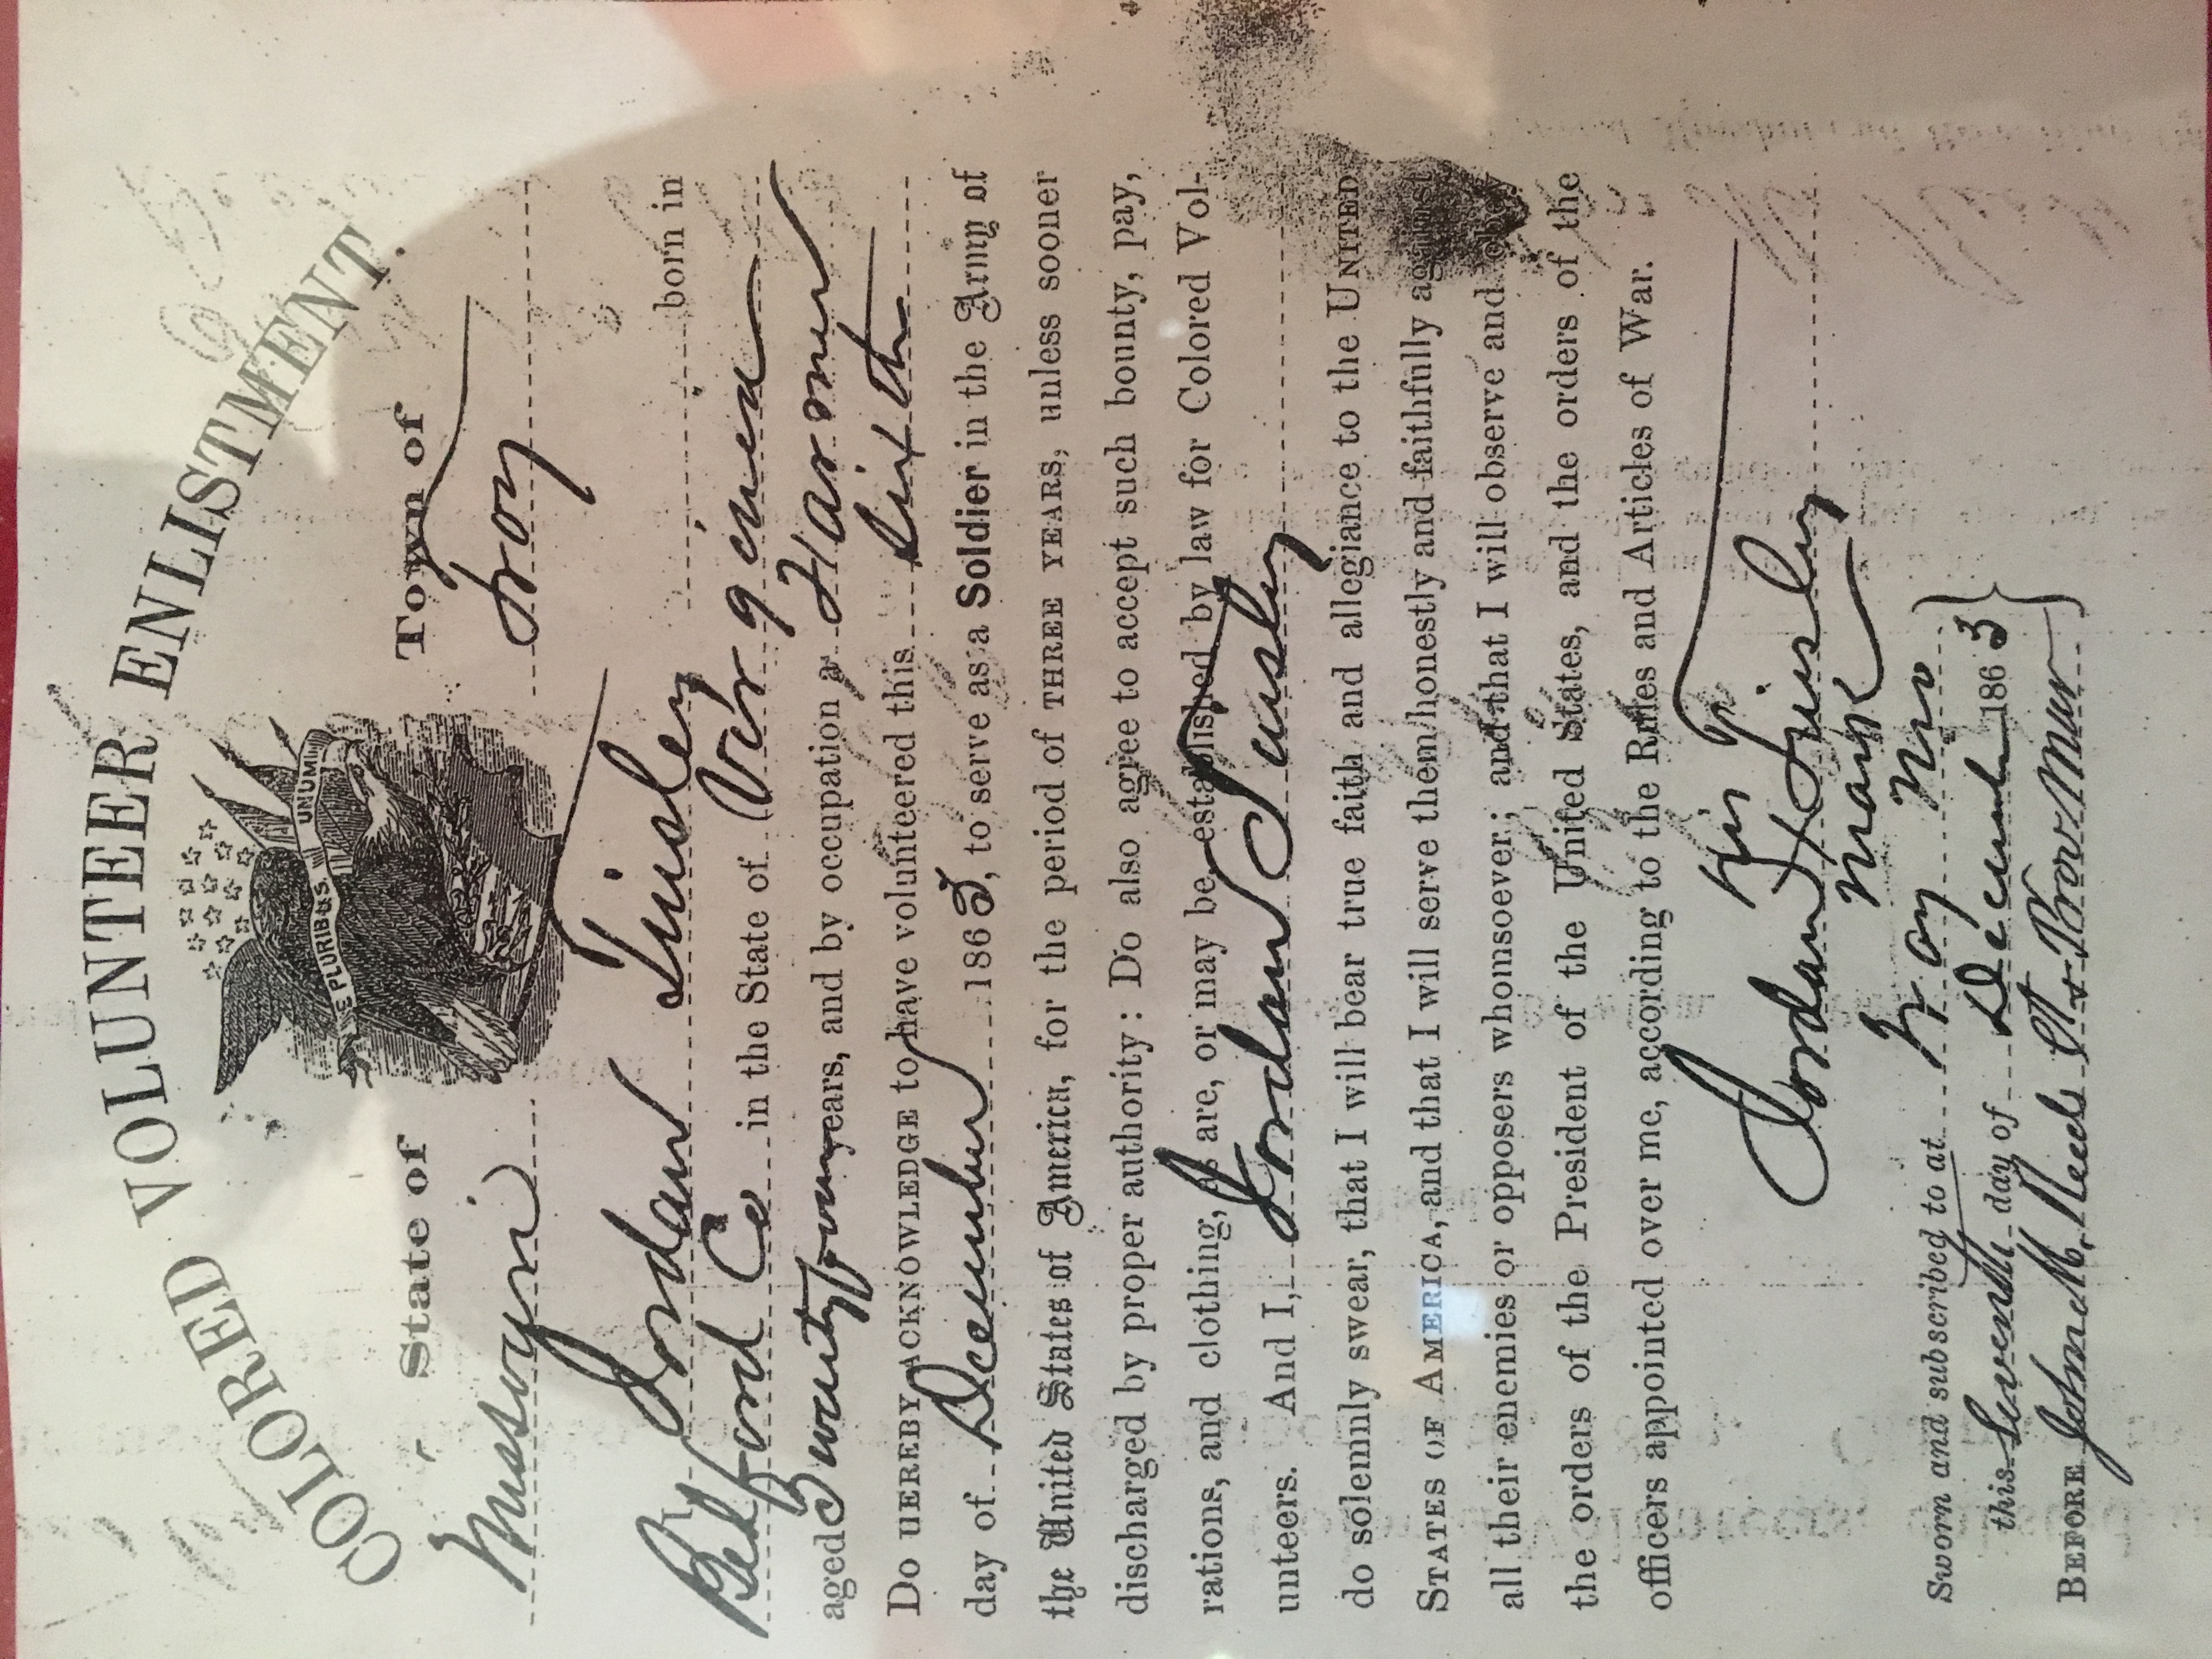 COLORED VOLUNTEER ENLISTMENT.
E PLURIBUS UNUM
State of Town of
Missouri Troy
I, Jordan Tinsley born in
Bedford Co in the State of Virginia
aged Twenty Four years, and by occupation a Farmer
DO HEREBY ACKNOWLEDGE to have volunteered this Sixth
day of December 1863, to serve as a Soldier in the Army of
the United States of America, for the period of THREE YEARS, unless sooner
discharged by proper authority: Do also agree to accept such bounty, pay,
rations, and clothing, as are, or may be, established by law for Colored Vol-
unteers. And I, Jordan Tinsley
do solemnly swear, that I will bear true faith and allegiance to the UNITED
STATES OF AMERICA, and that I will serve them honestly and faithfully against
all their enemies or opposers whomsoever; and that I will observe and obey
the orders of the President of the United States, and the orders of the
officers appointed over me, according to the Rules and Articles of War.
his
Jordan X Tinsley
mark
Sworn and subscribed to at Troy Mo
this Seventh day of December 1863
BEFORE John M. Reeds Ast Prov Mar